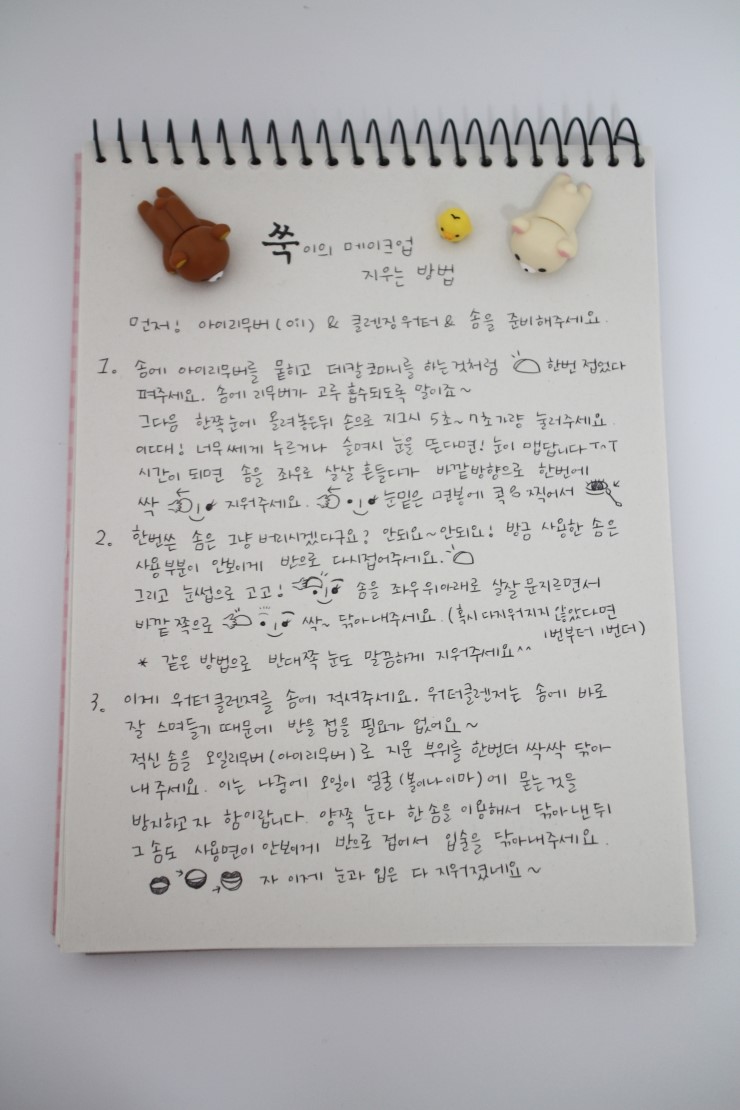 쑥이의 메이크업
지우는 방법
먼저! 아이리무버(oil) & 클렌징워터 & 솜을 준비해주세요.
1. 솜에 아이리무버를 뭍히고 데칼코마니를 하는것처럼 한번 접었다
펴주세요. 솜에 리무버가 고루 흡수되도록 말이죠~
그다음 한쪽눈에 올려놓은뒤 손으로 지그시 5초~7초가량 눌러주세요.
이때! 너무쎄게 누르거나 슬며시 눈을 뜬다면! 눈이 맵답니다 ㅜ^ㅜ
시간이 되면 솜을 좌우로 살살 흔들다가 바깥방향으로 한번에
싹 지워주세요. 눈밑은 면봉에 콕 찍어서
2. 한번쓴 솜은 그냥 버리시겠다구요? 안되요~안되요! 방금 사용한 솜은
사용부분이 안보이게 반으로 다시접어주세요.
그리고 눈썹으로 고고! 솜을 좌우위아래로 살살문지르면서
바깥쪽으로 싹~ 닦아내주세요. (혹시 다지워지지 않았다면
1번부터 1번더)
* 같은 방법으로 반대쪽 눈도 말끔하게 지워주세요^^
3. 이제 워터클렌져를 솜에 적셔주세요. 워터클렌저는 솜에 바로
잘 스며들기 때문에 반을 접을 필요가 없어요~
적신솜을 오일리무버(아이리무버)로 지운 부위를 한번더 싹싹 닦아
내주세요. 이는 나중에 오일이 얼굴(볼이나이마)에 묻는것을
방지하고자 함이랍니다. 양쪽 눈다 한솜을 이용해서 닦아낸뒤
그솜도 사용면이안보이게 반으로 접어서 입술을 닦아내주세요.
자 이제 눈과 입은 다 지워졌네요~